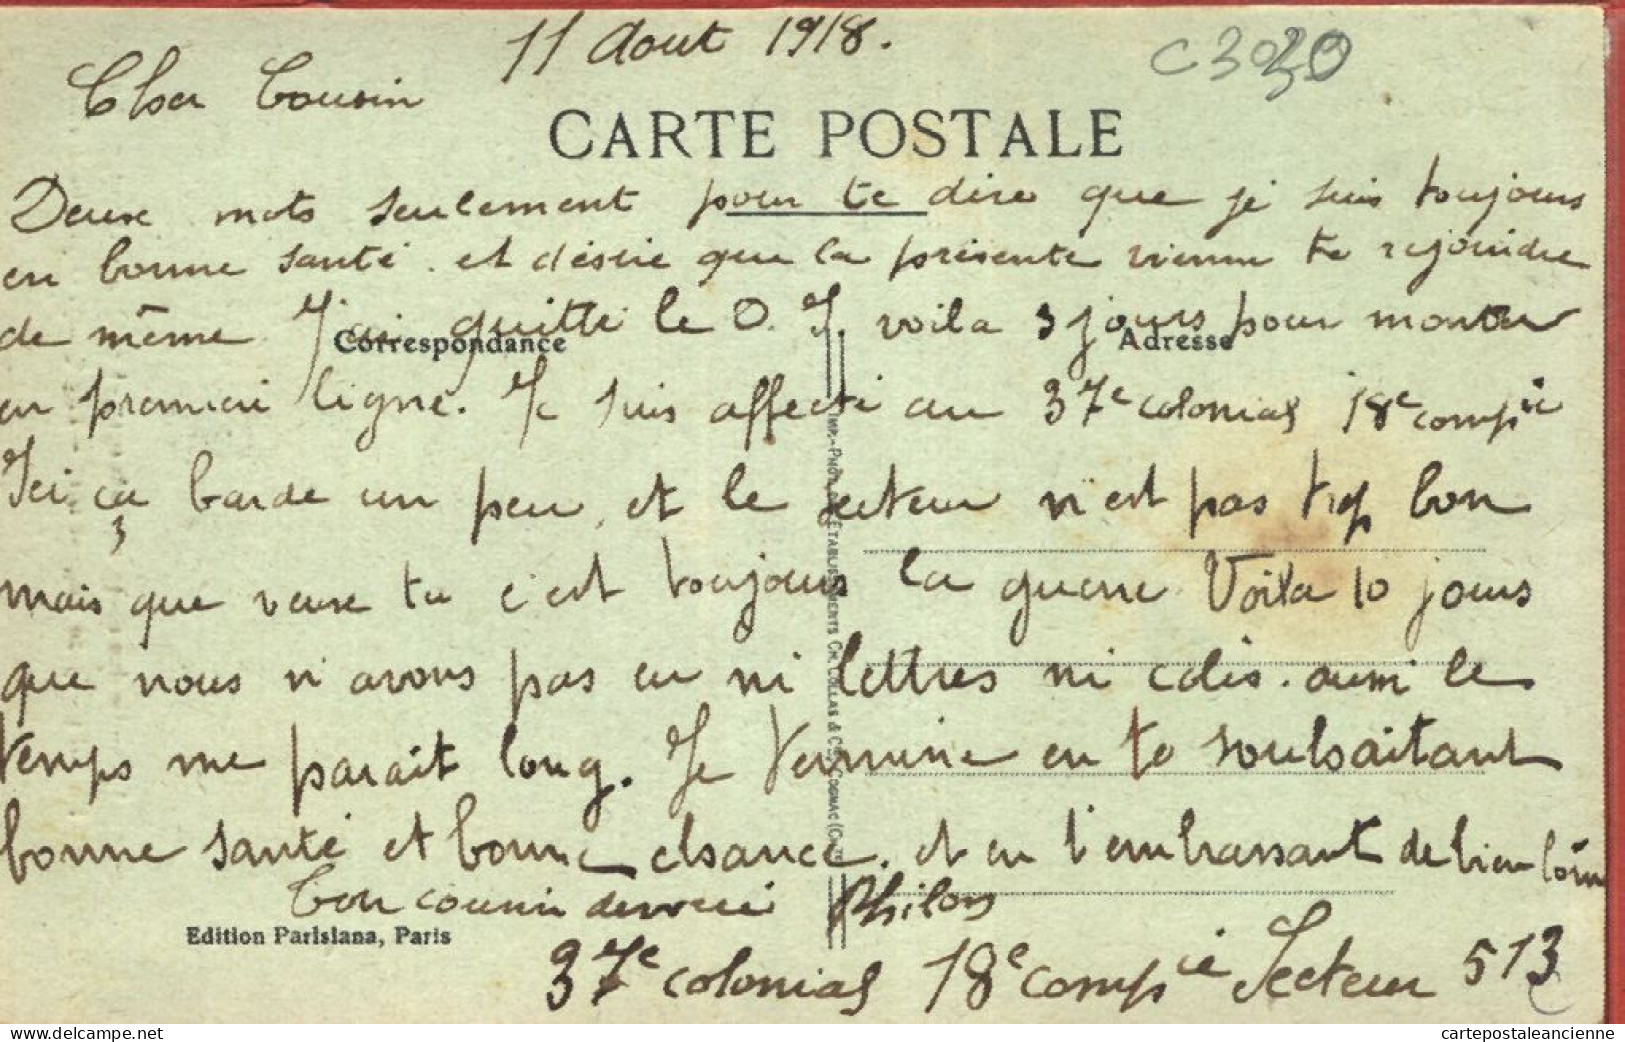 11 Aout 1918.
C3030
Cher Cousin
CARTE POSTALE
Deux mots seulement pour te dire que je suis toujours
en bonne santé. et désire que la présente vienne te rejoindre
de même J'ai quitté le D. I. voila 3 jours pour monter
Correspondance
Adresse
en premiere ligne. Je suis affecté au 37e colonial 18e compie
Ici ça barde un peu, et le secteur n'est pas trop bon
mais que veux tu c'est toujours la guerre Voila 10 jours
que nous n'avons pas eu ni lettres ni colis. aussi le
temps me parait long. Je termine en te souhaitant
bonne santé et bonne chance. et en t'embrassant de bien loin
Ton cousin devoué Philos
Edition Parisiana, Paris
37e colonial 18e compie Secteur 513
www.delcampe.net
cartepostaleancienne